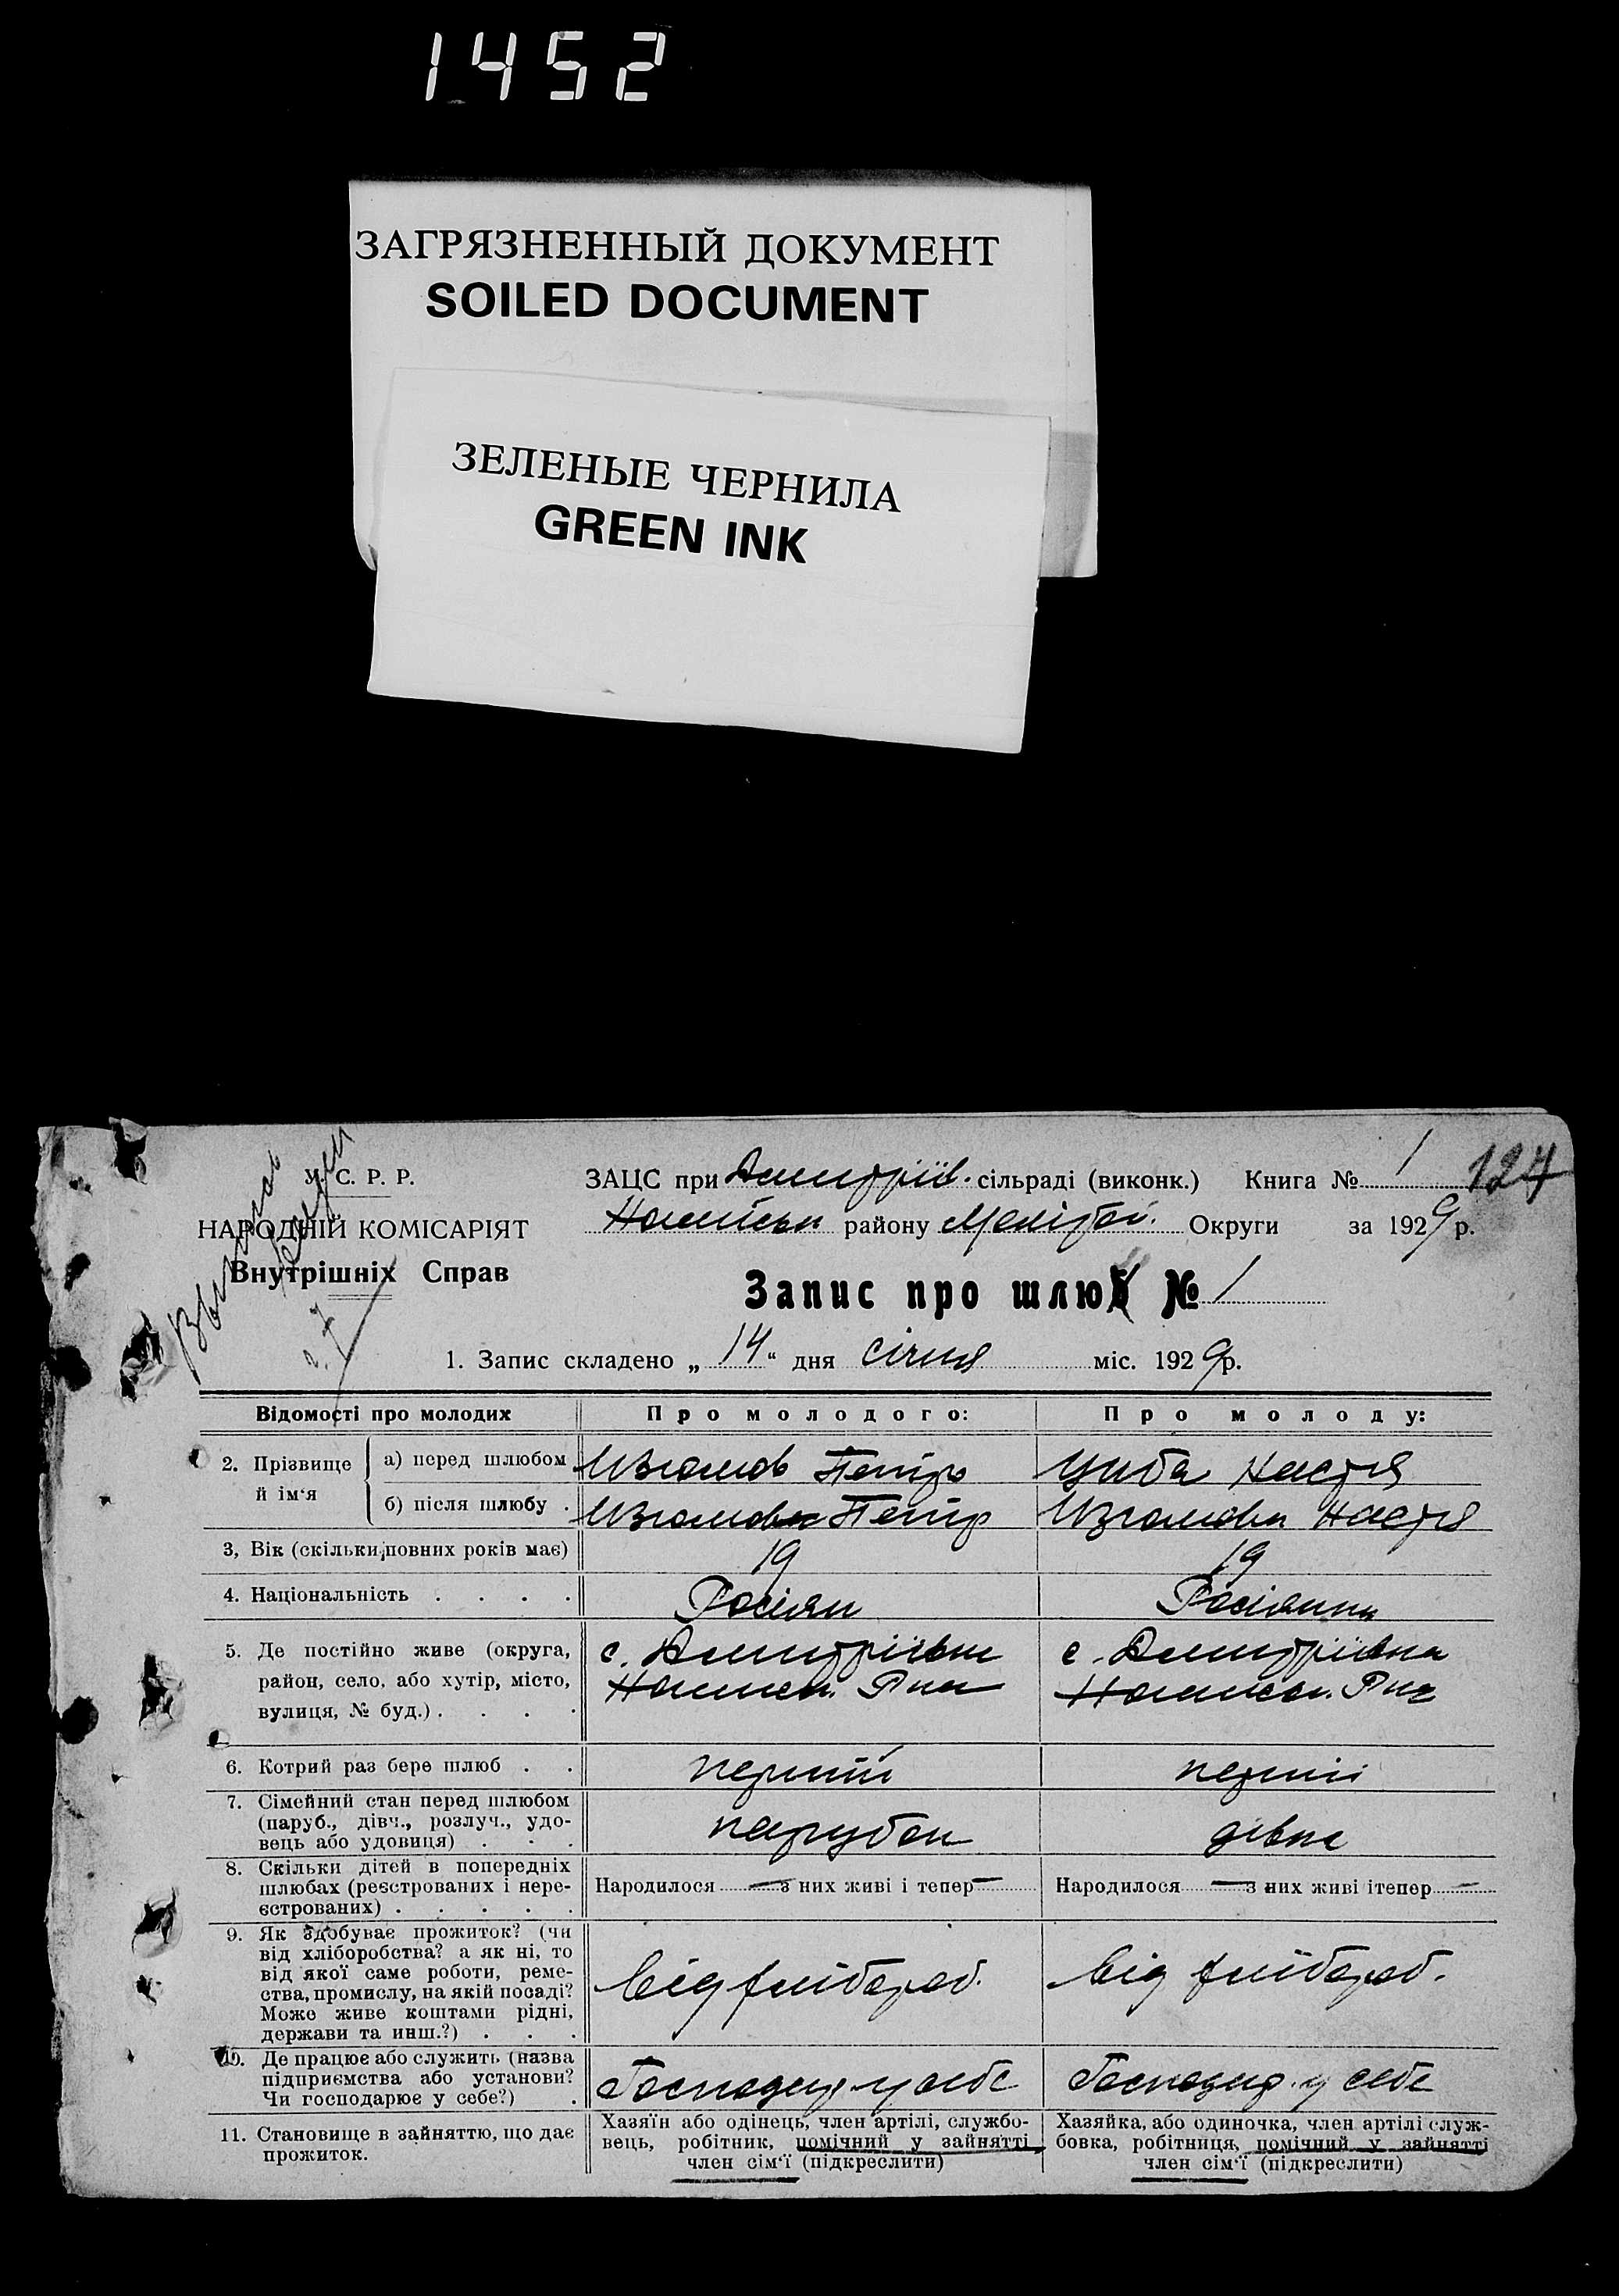 1452
ЗАГРЯЗНЕННЫЙ ДОКУМЕНТ
SOILED DOCUMENT
ЗЕЛЕНЫЕ ЧЕРНИЛА
GREEN INK
У. С. Р. Р.
НАРОДНІЙ КОМІСАРІЯТ
Внутрішніх Справ
ЗАЦС при Дмитріїв. сільраді (виконк.) Книга № 1 124
району Меліtоп. Округи за 1929 р.
Запис про шлюб № 1
1. Запис складено „14“ дня січня міс. 1929 р.
Відомості про молодих Про молодого: Про молоду:
2. Прізвище й ім‘я
а) перед шлюбом Петро Циба Настя
б) після шлюбу . Петр Настя
3, Вік (скільки повних років має) 19 19
4. Національність . . . . Росіян Росіянка
5. Де постійно живе (округа,
район, село, або хутір, місто,
вулиця, № буд.) . . . .
с. Дмитріївка с. Дмитріївка
6. Котрий раз бере шлюб . . перший перший
7. Сімейний стан перед шлюбом
(паруб., дівч., розлуч., удо-
вець або удовиця) . . .
парубок дівка
8. Скільки дітей в попередніх
шлюбах (реєстрованих і нере-
єстрованих) . . . . .
Народилося — з них живі і тепер — Народилося — з них живі ітепер —
9. Як здобуває прожиток? (чи
від хліборобства? а як ні, то
від якої саме роботи, реме-
ства, промислу, на якій посаді?
Може живе коштами рідні,
держави та инш.?) . . .
від хлібороб. від хлібороб.
10. Де працює або служить (назва
підприємства або установи?
Чи господарює у себе?) .
Господар. у себе Господар. у себе
11. Становище в зайняттю, що дає
прожиток.
Хазяїн або одінець, член артілі, службо-
вець, робітник, помічний у зайнятті
член сім‘ї (підкреслити)
Хазяйка, або одиночка, член артілі служ-
бовка, робітниця, помічний у зайнятті
член сім‘ї (підкреслити)